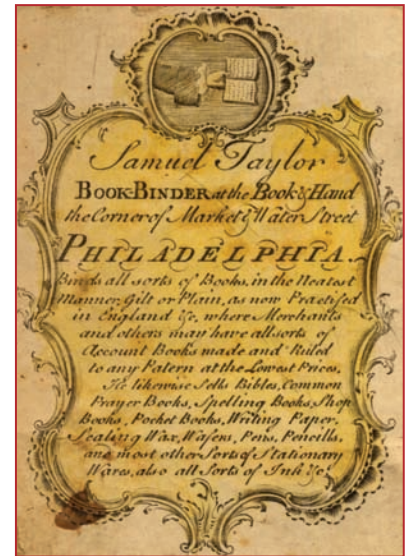 Samuel Taylor
BOOK-BINDER at the Book & Hand
the Corner of Market & Water Street
PHILADELPHIA.
Binds all sorts of Books, in the Neatest
Manner, Gilt or Plain, as now Practised
in England &c, where Merchants
and others may have all sorts of
Account Books made and Ruled
to any Patern at the Lowest Prices,
He likewise Sells Bibles, Common
Prayer Books, Spelling Books, Shop
Books, Pocket Books, Writing Paper,
Sealing Wax, Wafers, Pens, Pencills,
and most other Sorts of Stationary
Wares, also all Sorts of Ink &c